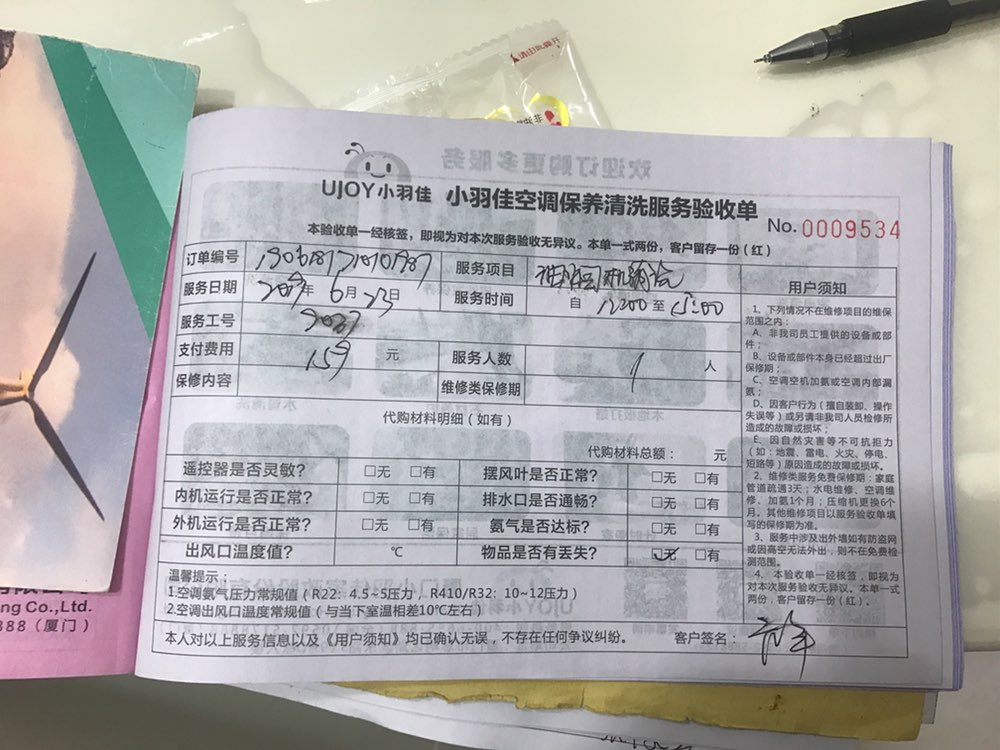 欢迎订购更多服务
UJOY小羽佳 小羽佳空调保养清洗服务验收单
No. 0009534
本验收单一经核签，即视为对本次服务验收无异议。本单一式两份，客户留存一份（红）
订单编号 服务项目 用户须知
服务日期 2019年 6月 23日 服务时间 自 12:00 至 15:00
服务工号
支付费用 159 元 服务人数 1 人
保修内容 维修类保修期
代购材料明细（如有）
代购材料总额： 元
遥控器是否灵敏？ □无 □有 摆风叶是否正常？ □无 □有
内机运行是否正常？ □无 □有 排水口是否通畅？ □无 □有
外机运行是否正常？ □无 □有 氨气是否达标？ □无 □有
出风口温度值？ ℃ 物品是否有丢失？ ☑无 □有
1、下列情况不在维修项目的维保
范围之内：
A、非我司员工提供的设备或部
件；
B、设备或部件本身已经超过出厂
保修期；
C、空调空机加氨或空调内部漏
氨；
D、因客户行为（擅自装卸、操作
失误等）或另请非我司人员检修所
造成的故障或损坏；
E、因自然灾害等不可抗拒力
（如：地震、雷电、火灾、停电、
短路等）原因造成的故障或损坏。
2、维修类服务免费保修期：家庭
管道疏通3天；水电维修、空调维
修、加氨1个月；压缩机更换6个
月。其他维修项目以服务验收单填
写的保修期为准。
3、服务中涉及出外墙如有防盗网
或因高空无法外出，则不在免费检
测范围。
4、本验收单一经核签，即视为
对本次服务验收无异议。本单一式
两份，客户留存一份（红）。
温馨提示：
1.空调氨气压力常规值（R22：4.5~5压力，R410/R32：10~12压力）
2.空调出风口温度常规值（与当下室温相差10℃左右）
本人对以上服务信息以及《用户须知》均已确认无误，不存在任何争议纠纷。 客户签名：
ng Co.,Ltd.
388（厦门）